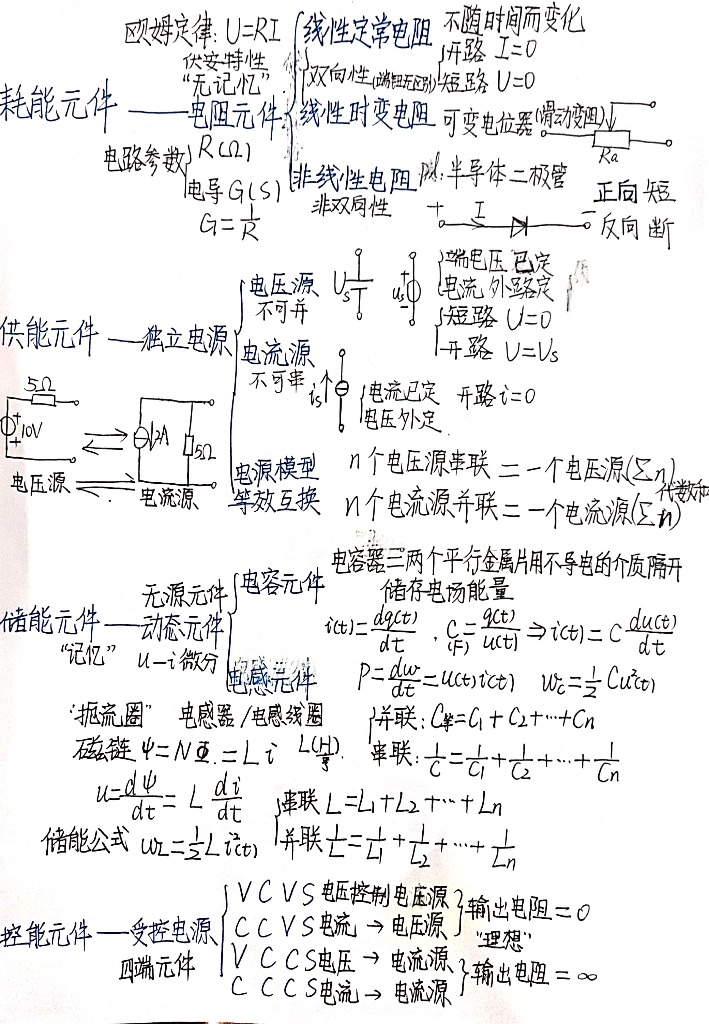 欧姆定律: U=RI
伏安特性
"无记忆"
耗能元件 — 电阻元件
电路参数 R(Ω)
电导 G(S)
G=1/R
线性定常电阻 不随时间而变化
双向性(端钮无区别) 开路 I=0
短路 U=0
线性时变电阻 可变电位器(滑动变阻)
Ra
非线性电阻 半导体二极管
非双向性
+ I −
正向 短
反向 断
供能元件 — 独立电源
电压源
不可并
Us
us + −
端电压 已定
电流 外路定
短路 U=0
开路 U=Us
电流源
不可串
is
电流已定 开路 i=0
电压外定
5Ω
+ 10V +
电压源
2A 5Ω
电流源
电源模型
等效互换
n个电压源串联 = 一个电压源(Σn)
代数和
n个电流源并联 = 一个电流源(Σn)
储能元件 — 动态元件
"记忆"
无源元件
u−i 微分
电容元件
电容器=两个平行金属片用不导电的介质隔开
储存电场能量
i(t)=dq(t)/dt , C=q(t)/u(t) ⇒ i(t)=C du(t)/dt
(F)
P=dw/dt=u(t)i(t) Wc=½Cu²(t)
并联: C等=C1+C2+…+Cn
串联: 1/C=1/C1+1/C2+…+1/Cn
电感元件
"扼流圈" 电感器/电感线圈
磁链 Ψ=NΦ=Li
u=dΨ/dt=L di/dt
储能公式 WL=½Li²(t)
串联 L=L1+L2+…+Ln
并联 1/L=1/L1+1/L2+…+1/Ln
控能元件 — 受控电源
四端元件
VCVS 电压控制电压源
CCVS 电流 → 电压源
输出电阻=0
"理想"
VCCS 电压 → 电流源
CCCS 电流 → 电流源
输出电阻=∞